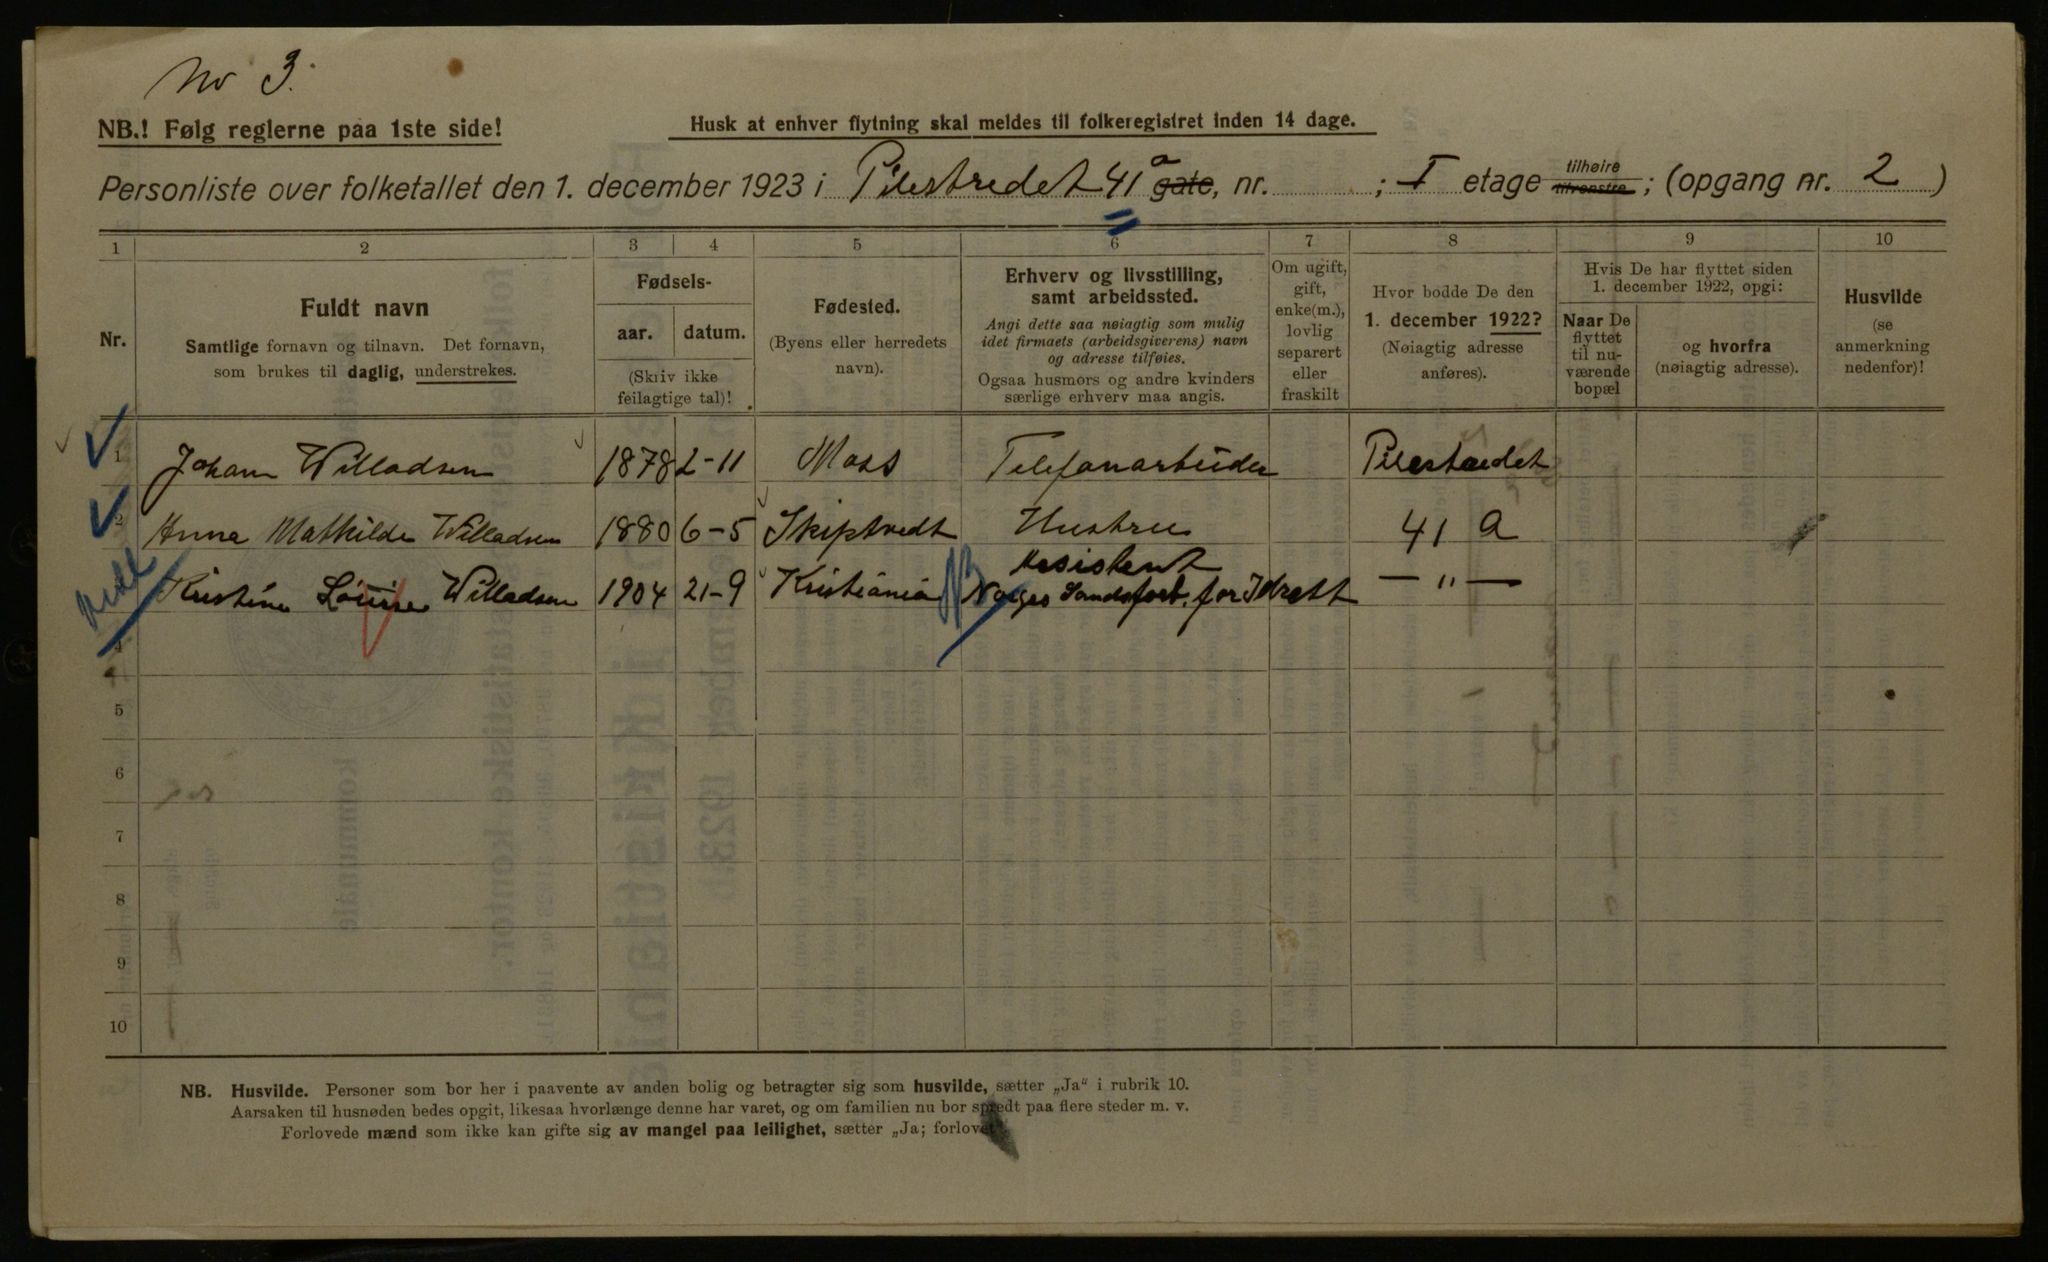 No 3.
NB.! Følg reglerne paa 1ste side!
Husk at enhver flytning skal meldes til folkeregistret inden 14 dage.
Personliste over folketallet den 1. december 1923 i Pilestredet 41 a gate, nr. ; I etage tilhøire tilvenstre ; (opgang nr. 2 )
1 2 3 4 5 6 7 8 9 10
Nr.
Fuldt navn
Samtlige fornavn og tilnavn. Det fornavn,
som brukes til daglig, understrekes.
Fødsels-
aar. datum.
(Skriv ikke
feilagtige tal)!
Fødested.
(Byens eller herredets
navn).
Erhverv og livsstilling,
samt arbeidssted.
Angi dette saa nøiagtig som mulig
idet firmaets (arbeidsgiverens) navn
og adresse tilføies.
Ogsaa husmors og andre kvinders
særlige erhverv maa angis.
Om ugift,
gift,
enke(m.),
lovlig
separert
eller
fraskilt
Hvor bodde De den
1. december 1922?
(Nøiagtig adresse
anføres).
Hvis De har flyttet siden
1. december 1922, opgi:
Naar De
flyttet
til nu-
værende
bopæl
og hvorfra
(nøiagtig adresse).
Husvilde
(se
anmerkning
nedenfor)!
1 Johan Willadsen 1878 2-11 Moss Telefonarbeider Pilestredet
2 Anna Mathilde Willadsen 1880 6-5 Skiptvedt Hustru 41 a
Kristine Louise Willadsen 1904 21-9 Kristiania Assistent
Norges Landsforb. for Idrett — " —
4
5
6
7
8
9
10
NB. Husvilde. Personer som bor her i paavente av anden bolig og betragter sig som husvilde, sætter „Ja" i rubrik 10.
Aarsaken til husnøden bedes opgit, likesaa hvorlænge denne har varet, og om familien nu bor spredt paa flere steder m. v.
Forlovede mænd som ikke kan gifte sig av mangel paa leilighet, sætter „Ja; forlovet